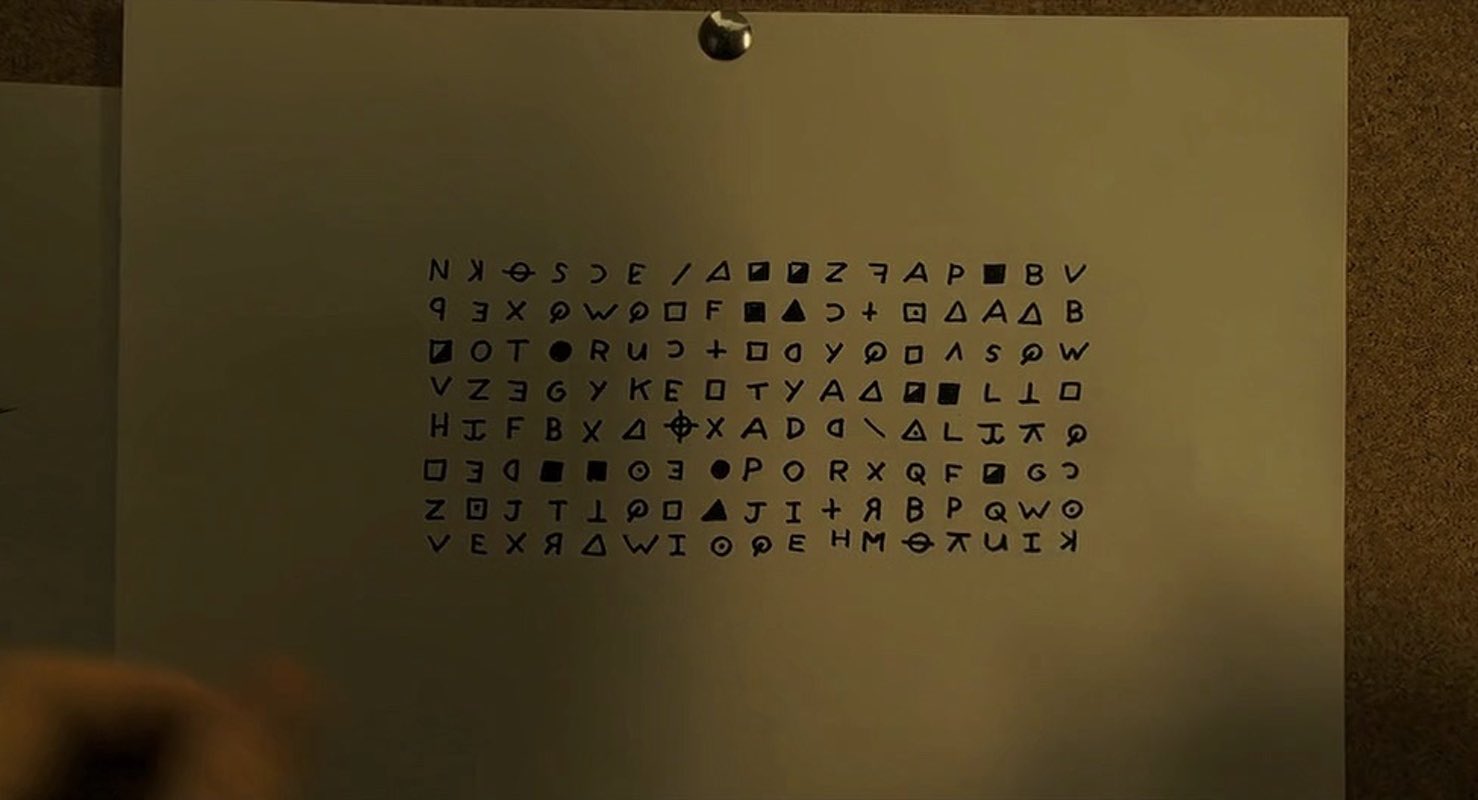 N ꓘ ⦵ S Ɔ E / △ ◪ ◪ Z ꟻ A P ■ B V
ꟼ Ǝ X ⌕ W ⌕ □ F ■ ▲ Ɔ + ⊡ △ A △ B
◪ O T ● R U Ɔ + □ ᗡ Y ⌕ □ Λ S ⌕ W
V Z Ǝ G Y K E □ T Y A △ ◪ ■ L ⊥ □
H I F B X △ ⌖ X A D ᗡ \ ◬ L I ⊼ ⌕
□ Ǝ ᗡ ■ ■ ⊙ Ǝ ● P O R X Q F ◪ G Ɔ
Z ⊡ J T ⊥ ⌕ □ ▲ J I + Я B P Q W ⊙
V E X Я △ W I ⊙ ⌕ E H M ⦵ ⊼ U I ꓘ